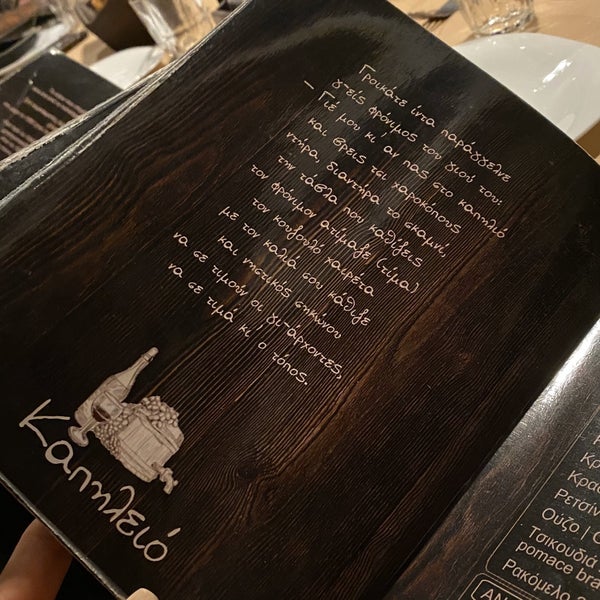 Γροικάτε ίντα παράγγελνε
γ-είς φρόνιμος του γιού του:
– Γιέ μου κι' αν πας στο καπηλιό
και θρείς τσι χαροκόπους
ντήρα, διαντήρα το σκαμνί,
την τάσλα που καθίζεις
τον φρόνιμον ατίμαζε (τίμα)
τον κουζουλό χαιρέτα
με τον καλιά σου κάθιζε
και νηστικός σηκώνου
να σε τιμούν οι γι-άρχοντες,
να σε τιμά κι' ο τόπος.
Καπηλειό
Ούζο |
Τσικουδιά
pomace
Ρακόμελο